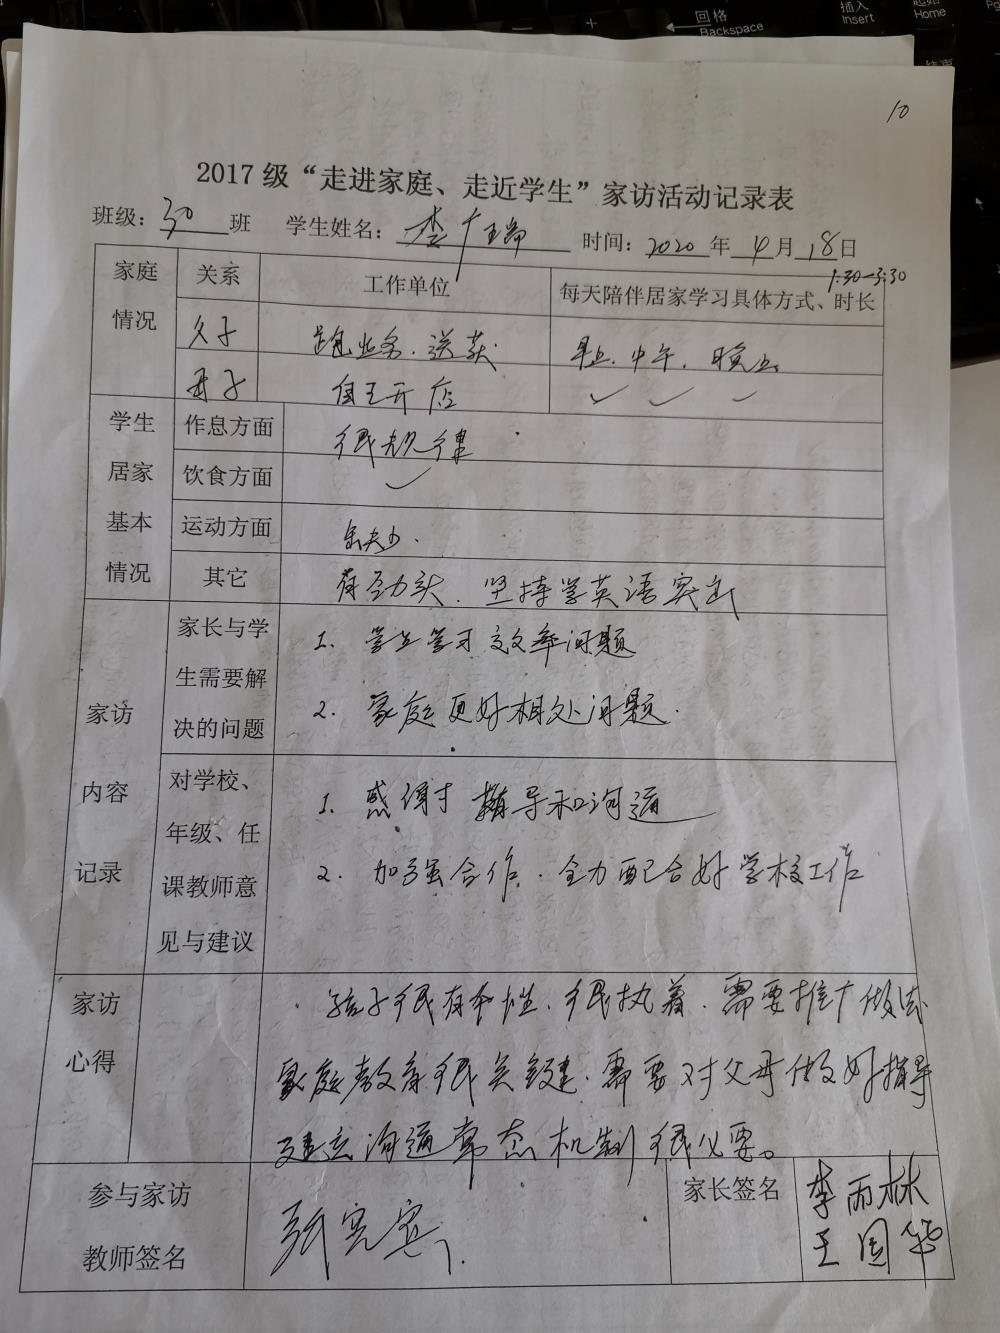 回格
Backspace
插入
Insert
起始
Home
10
2017级“走进家庭、走近学生”家访活动记录表
班级：30班 学生姓名： 时间：2020年4月18日
1:30-3:30
家庭情况
关系 工作单位 每天陪伴居家学习具体方式、时长
父子 跑业务、送获 早上、中午、晚上
母子 自己开店 ✓ ✓ ✓
学生居家基本情况
作息方面 很规律
饮食方面 ✓
运动方面 缺少.
其它 有劲头、坚持学英语突出
家访内容记录
家长与学生需要解决的问题
1. 学生学习效率问题
2. 家庭更好相处问题.
对学校、年级、任课教师意见与建议
1. 感谢 辅导和沟通
2. 加强合作、全力配合好学校工作
家访心得
孩子很有个性、很执着、需要推广做法
家庭教育很关键、需要对父母做好指导
建立沟通常态机制很必要。
参与家访教师签名
家长签名
李雨林
王国华